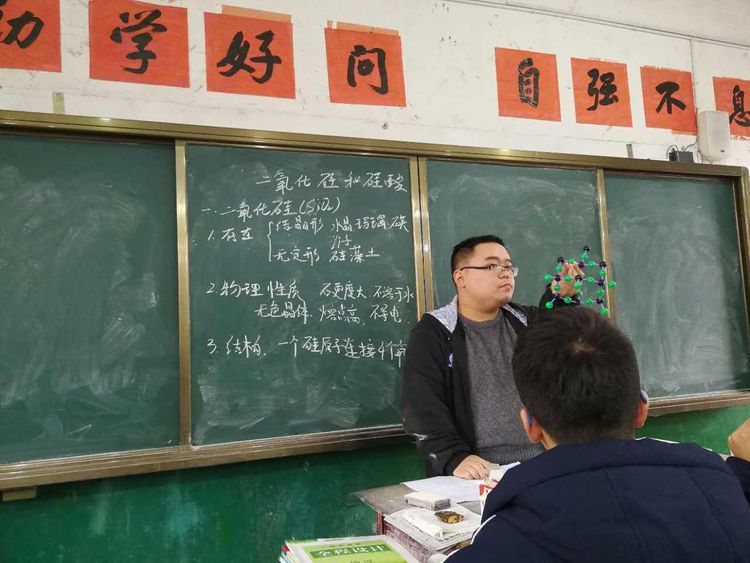 动 学 好 问 自 强 不 息
二氧化硅和硅酸
一.二氧化硅(SiO₂)
1.存在 结晶形 水晶 玛瑙 石英
沙子
无定形 硅藻土
2.物理性质 硬度大 不溶于水
无色晶体. 熔点高、不导电.
3.结构. 一个硅原子连接4个
全程设计